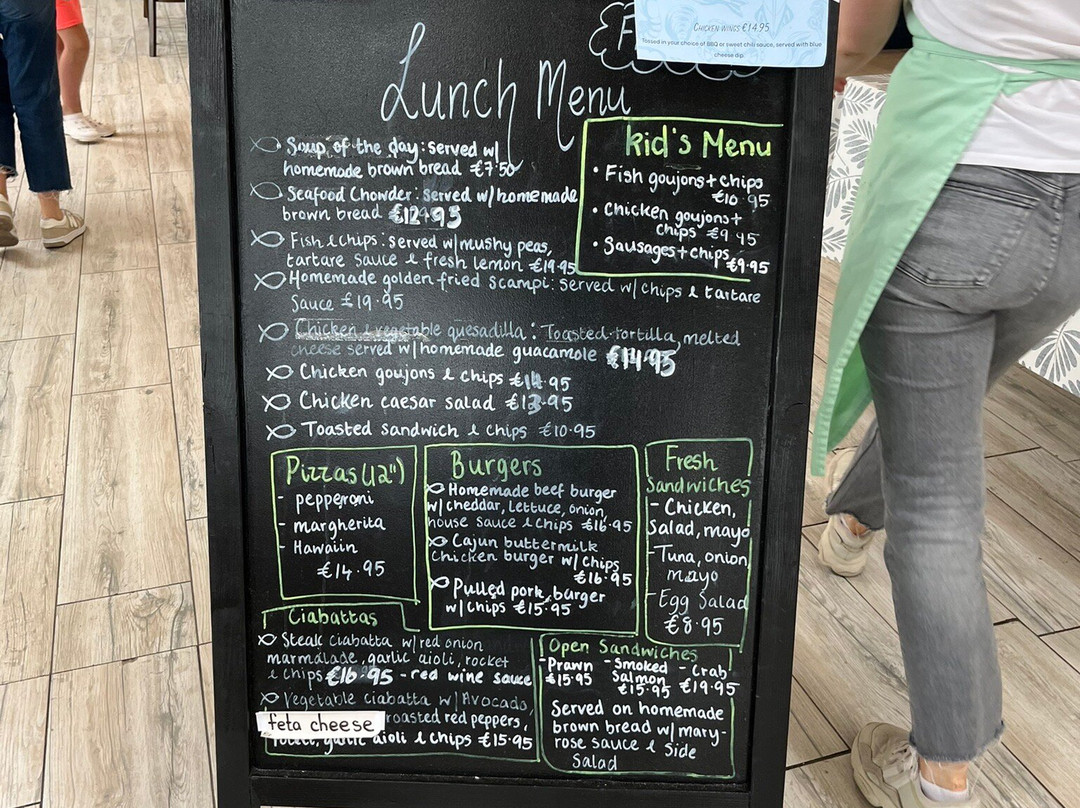 CHICKEN WINGS €14.95
Tossed in your choice of BBQ or sweet chili sauce, served with blue
cheese dip.
F
Lunch Menu
Soup of the day: served w/
homemade brown bread €7.50
Seafood Chowder: served w/homemade
brown bread €12.95
Fish & chips: served w/mushy peas,
tartare sauce & fresh lemon €19.95
Homemade golden fried scampi: served w/chips & tartare
sauce €19.95
Chicken & vegetable quesadilla: Toasted tortilla, melted
cheese served w/homemade guacamole €14.95
Chicken goujons & chips €14.95
Chicken caesar salad €13.95
Toasted sandwich & chips €10.95
kid's Menu
• Fish goujons + chips
€10.95
• Chicken goujons +
chips €9.95
• Sausages + chips
€9.95
Pizzas (12")
- pepperoni
- margherita
- Hawaiin
€14.95
Burgers
Homemade beef burger
w/cheddar, lettuce, onion,
house sauce & chips €16.95
Cajun buttermilk
Chicken burger w/ chips
€16.95
Pulled pork burger
w/chips €15.95
Fresh
Sandwiches
- Chicken,
Salad, mayo
- Tuna, onion,
mayo
- Egg Salad
€8.95
Ciabattas
Steak ciabatta w/red onion
marmalade, garlic aioli, rocket
& chips €16.95 - red wine sauce
Vegetable ciabatta w/Avocado,
feta cheese roasted red peppers,
garlic aioli & chips €15.95
Open Sandwiches
- Prawn - Smoked - Crab
€15.95 Salmon €19.95
€15.95
Served on homemade
brown bread w/mary-
rose sauce & side
salad